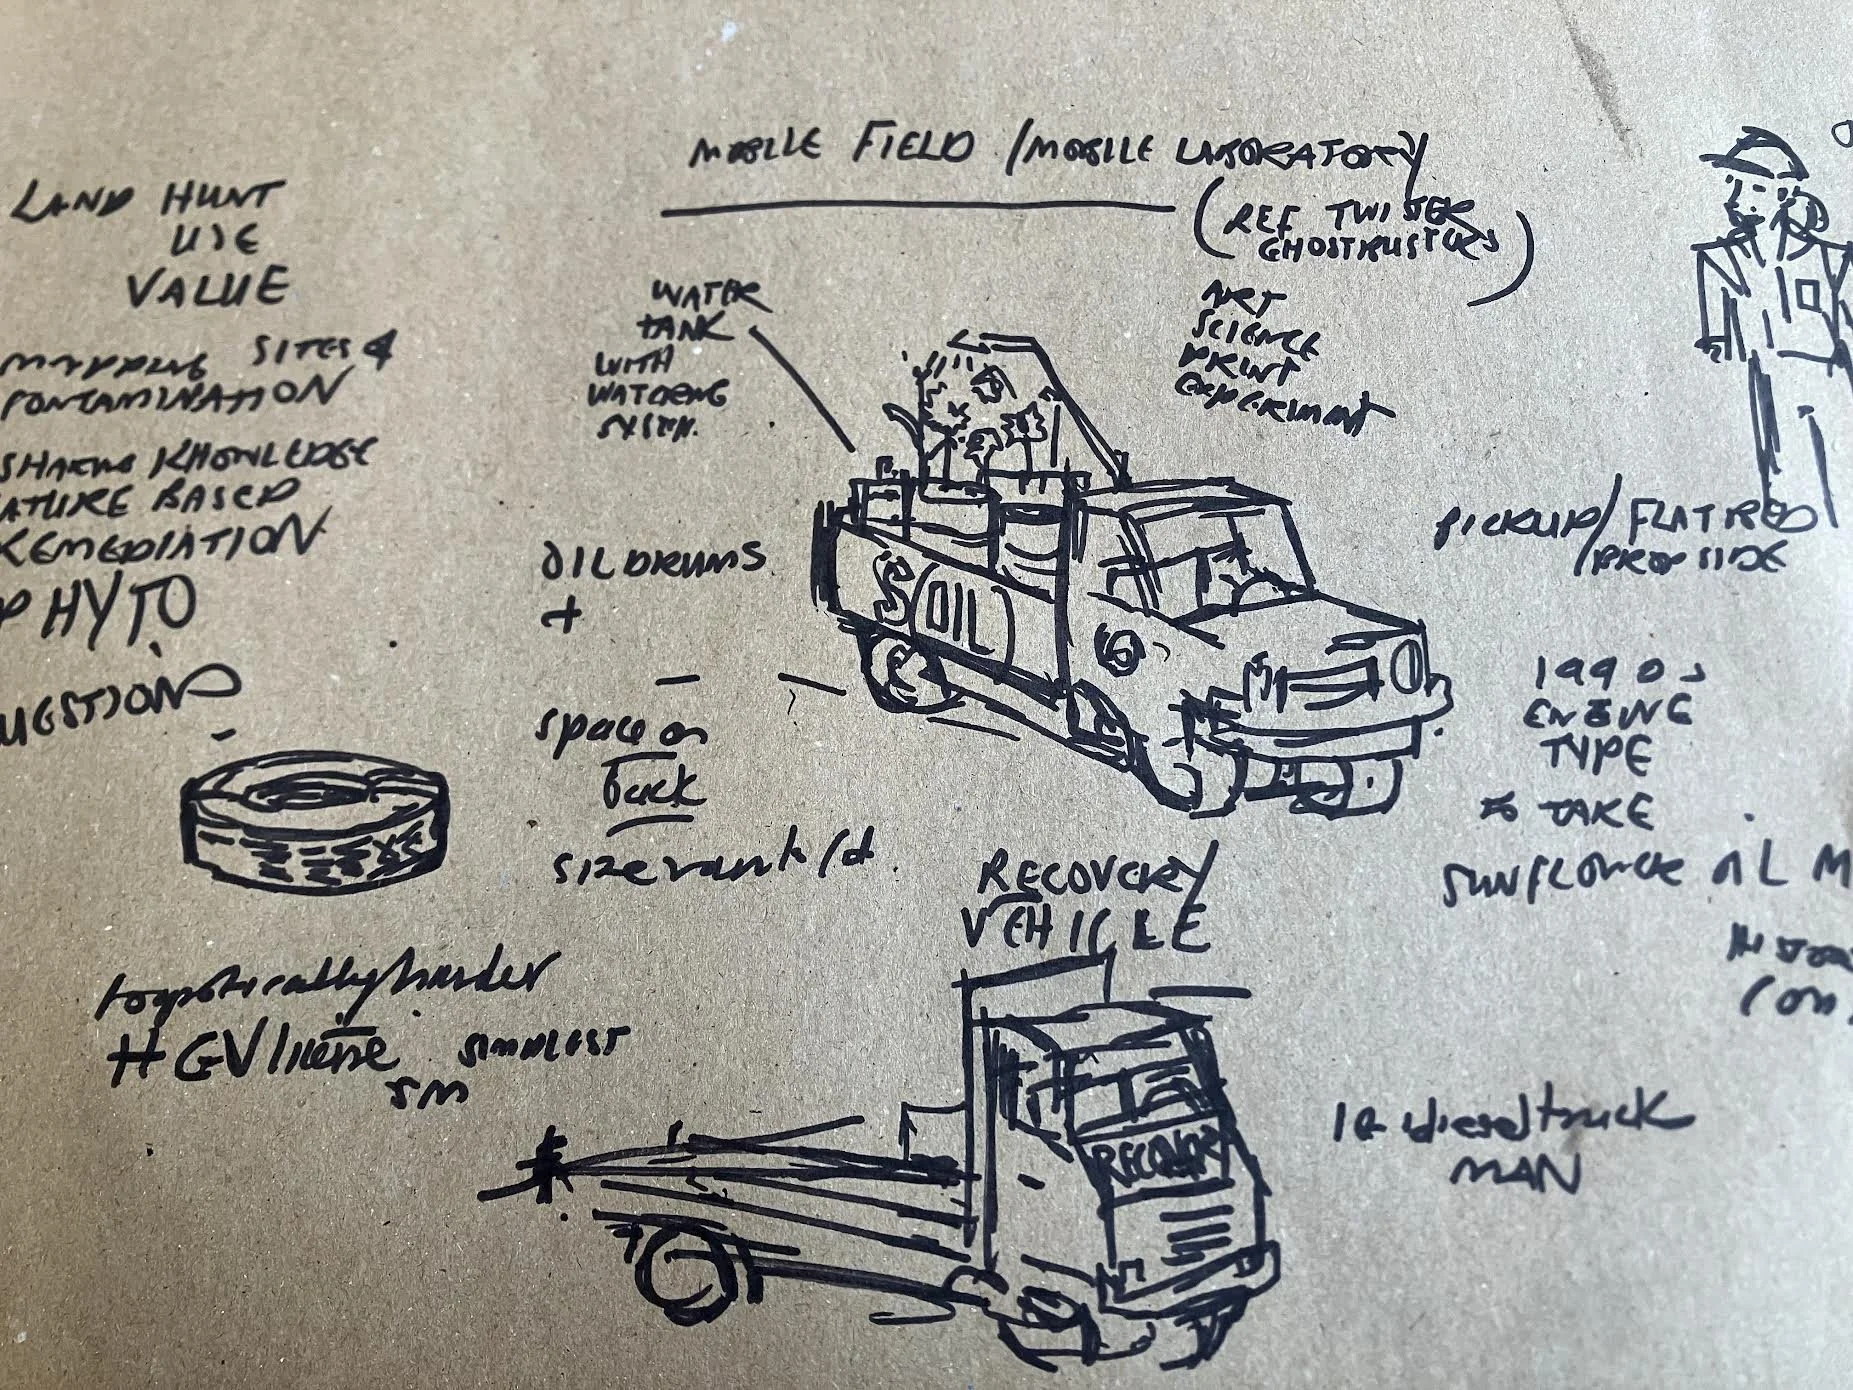 MOBILE FIELD / MOBILE LABORATORY
(REF TWISTER
GHOSTBUSTERS)
LAND HUNT
USE
VALUE
MAPPING SITES &
CONTAMINATION
SHARING KNOWLEDGE
ATURE BASED
REMEDIATION
PHYTO
UESTION
WATER
TANK
WITH
WATERING
SYSTEM.
ART
SCIENCE
PRINT
EXPERIMENT
OIL DRUMS
+
space on
back
size
OIL
PICKUP/FLATBED
DROPSIDE
1990s
ENGINE
TYPE
TO TAKE
SUNFLOWER OIL M
RECOVERY
VEHICLE
logistically harder
HGV license
SIMPLEST
SM
RECOVERY
ie diesel truck
MAN